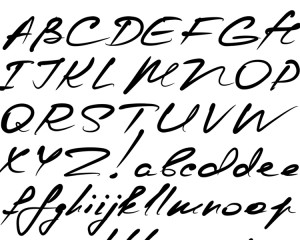 ABCDEFGH
IJKLMNOP
QRSTUVW
XYZ!abcddee
ffghiijkllmnoop